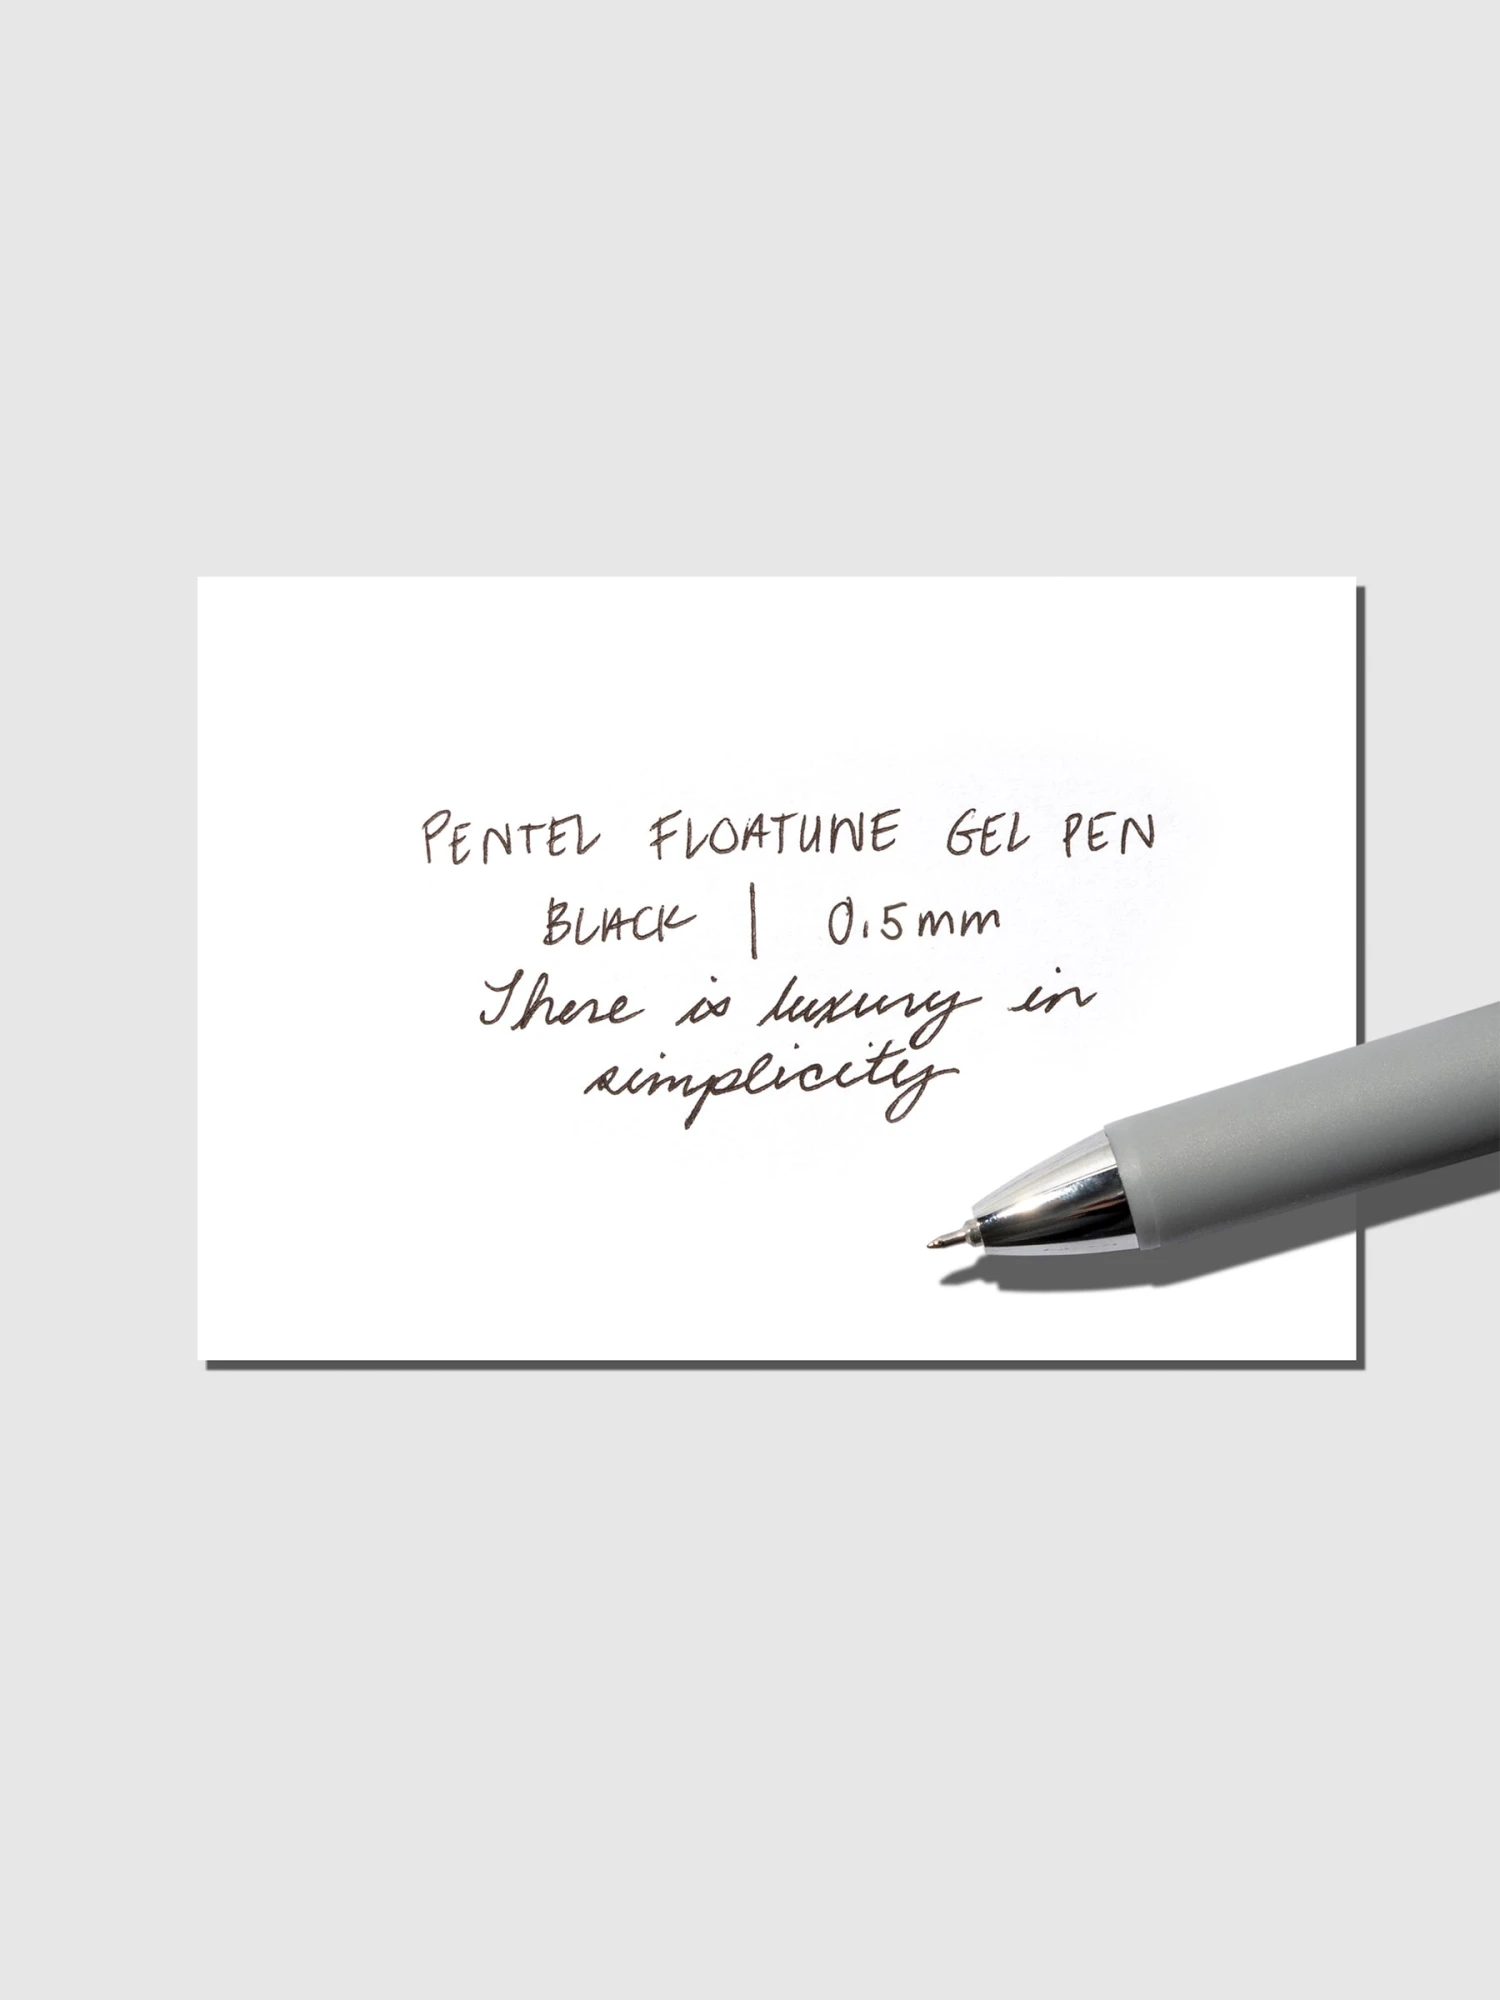 PENTEL FLOATUNE GEL PEN
BLACK | 0.5mm
There is luxury in
simplicity